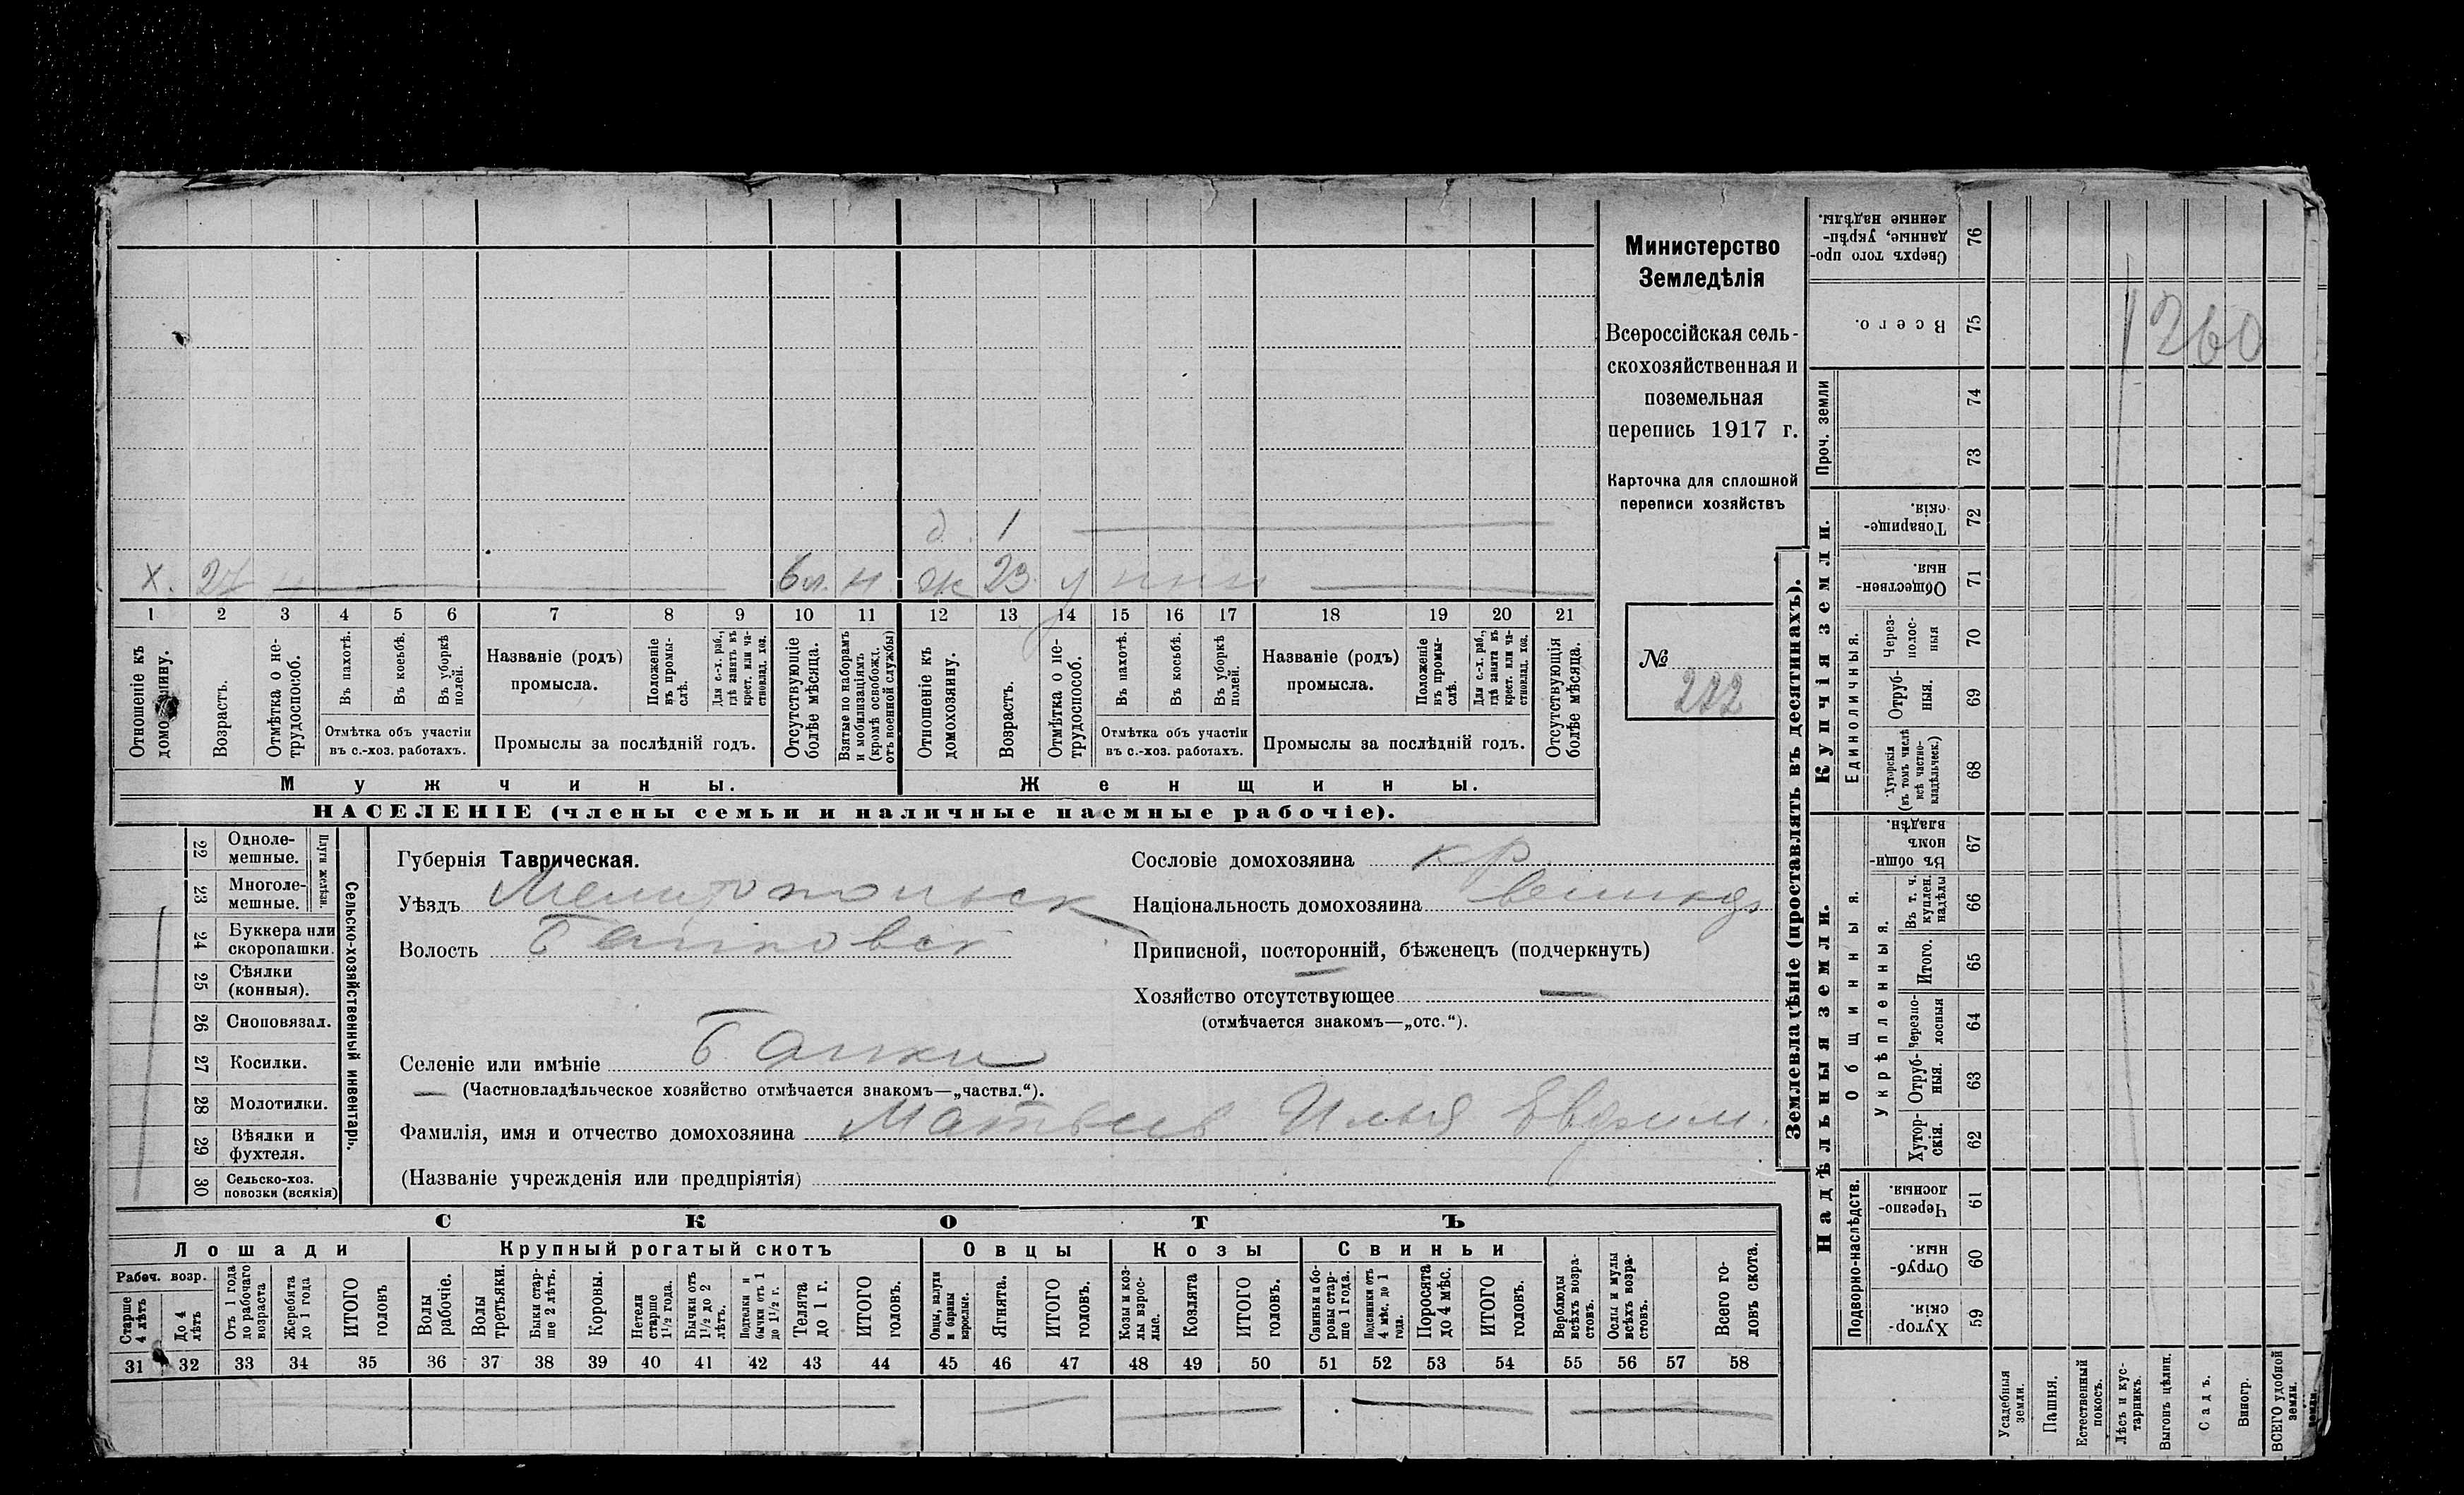 Министерство
Земледѣлія
Всероссійская сель-
скохозяйственная и
поземельная
перепись 1917 г.
Карточка для сплошной
переписи хозяйствъ
№
222
д. 1
х. 27 н 6 м. н ж 23
1 2 3 4 5 6 7 8 9 10 11 12 13 14 15 16 17 18 19 20 21
Отношеніе къ домохозяину.
Возрастъ.
Отмѣтка о не-трудоспособ.
Въ пахотѣ.
Въ косьбѣ.
Въ уборкѣ полей.
Отмѣтка объ участіи
въ с.-хоз. работахъ.
Названіе (родъ)
промысла.
Положеніе въ промы-слѣ.
Для с.-х. раб., гдѣ занятъ въ крест. или ча-стновлад. хоз.
Промыслы за послѣдній годъ.
Отсутствующіе болѣе мѣсяца.
Взятые по наборамъ и мобилизаціямъ (кромѣ освобожд. отъ военной службы)
Отношеніе къ домохозяину.
Возрастъ.
Отмѣтка о не-трудоспособ.
Въ пахотѣ.
Въ косьбѣ.
Въ уборкѣ полей.
Отмѣтка объ участіи
въ с.-хоз. работахъ.
Названіе (родъ)
промысла.
Положеніе въ промы-слѣ.
Для с.-х. раб., гдѣ занята въ крест. или ча-стновлад. хоз.
Промыслы за послѣдній годъ.
Отсутствующія болѣе мѣсяца.
Мужчины. Женщины.
НАСЕЛЕНІЕ (члены семьи и наличные наемные рабочіе).
22 Одноле-мешные.
23 Многоле-мешные.
Плуги желѣзн.
24 Буккера или скоропашки.
25 Сѣялки (конныя).
26 Сноповязал.
27 Косилки.
28 Молотилки.
29 Вѣялки и фухтеля.
30 Сельско-хоз. повозки (всякія)
Сельско-хозяйственный инвентарь.
Губернія Таврическая.
Уѣздъ Мелитопольск
Волость Балковск
Селеніе или имѣніе Балки
(Частновладѣльческое хозяйство отмѣчается знакомъ—„частвл.“).
Фамилія, имя и отчество домохозяина Матвѣевъ Илья Ефим.
(Названіе учрежденія или предпріятія)
Сословіе домохозяина кр
Національность домохозяина
Приписной, посторонній, бѣженецъ (подчеркнуть)
Хозяйство отсутствующее
(отмѣчается знакомъ—„отс.“).
СКОТЪ
Лошади Крупный рогатый скотъ Овцы Козы Свиньи
Рабоч. возр.
Старше 4 лѣтъ
До 4 лѣтъ
Отъ 1 года до рабочаго возраста
Жеребята до 1 года
ИТОГО головъ
Волы рабочіе.
Волы третьяки.
Быки стар-ше 2 лѣтъ.
Коровы.
Нетели старше 1½ года.
Бычки отъ 1½ до 2 лѣтъ.
Подтелки и бычки отъ 1 до 1½ г.
Телята до 1 г.
ИТОГО головъ.
Овцы, валухи и бараны взрослые.
Ягнята.
ИТОГО головъ.
Козы и коз-лы взрос-лые.
Козлята
ИТОГО головъ.
Свиньи и бо-ровы стар-ше 1 года.
Подсвинки отъ 4 мѣс. до 1 года.
Поросята до 4 мѣс.
ИТОГО головъ.
Верблюды всѣхъ возра-стовъ.
Ослы и мулы всѣхъ возра-стовъ.
Всего го-ловъ скота.
31 32 33 34 35 36 37 38 39 40 41 42 43 44 45 46 47 48 49 50 51 52 53 54 55 56 57 58
Землевладѣніе (проставлять въ десятинахъ).
Надѣльныя земли. Купчія земли. Проч. земли
Подворно-наслѣдств.
Общинныя.
Укрѣпленныя.
Единоличныя.
Сверхъ того про-данные, укрѣп-ленные надѣлы. 76
Всего. 75
74
73
Товарище-скія. 72
Обществен-ныя. 71
Через-полос-ныя 70
Отруб-ныя. 69
Хуторскія (въ томъ числѣ всѣ частно-владѣльческ.) 68
Въ общи-номъ владѣн. 67
Въ т. ч. куплен. надѣлы 66
Итого. 65
Черезпо-лосныя 64
Отруб-ныя. 63
Хутор-скія. 62
Черезпо-лосныя 61
Отруб-ныя. 60
Хутор-скія. 59
Усадебныя земли.
Пашня.
Естественный покосъ.
Лѣсъ и кус-тарникъ.
Выгонъ цѣлин.
Садъ.
Виногр.
ВСЕГО удобной земли.
1260